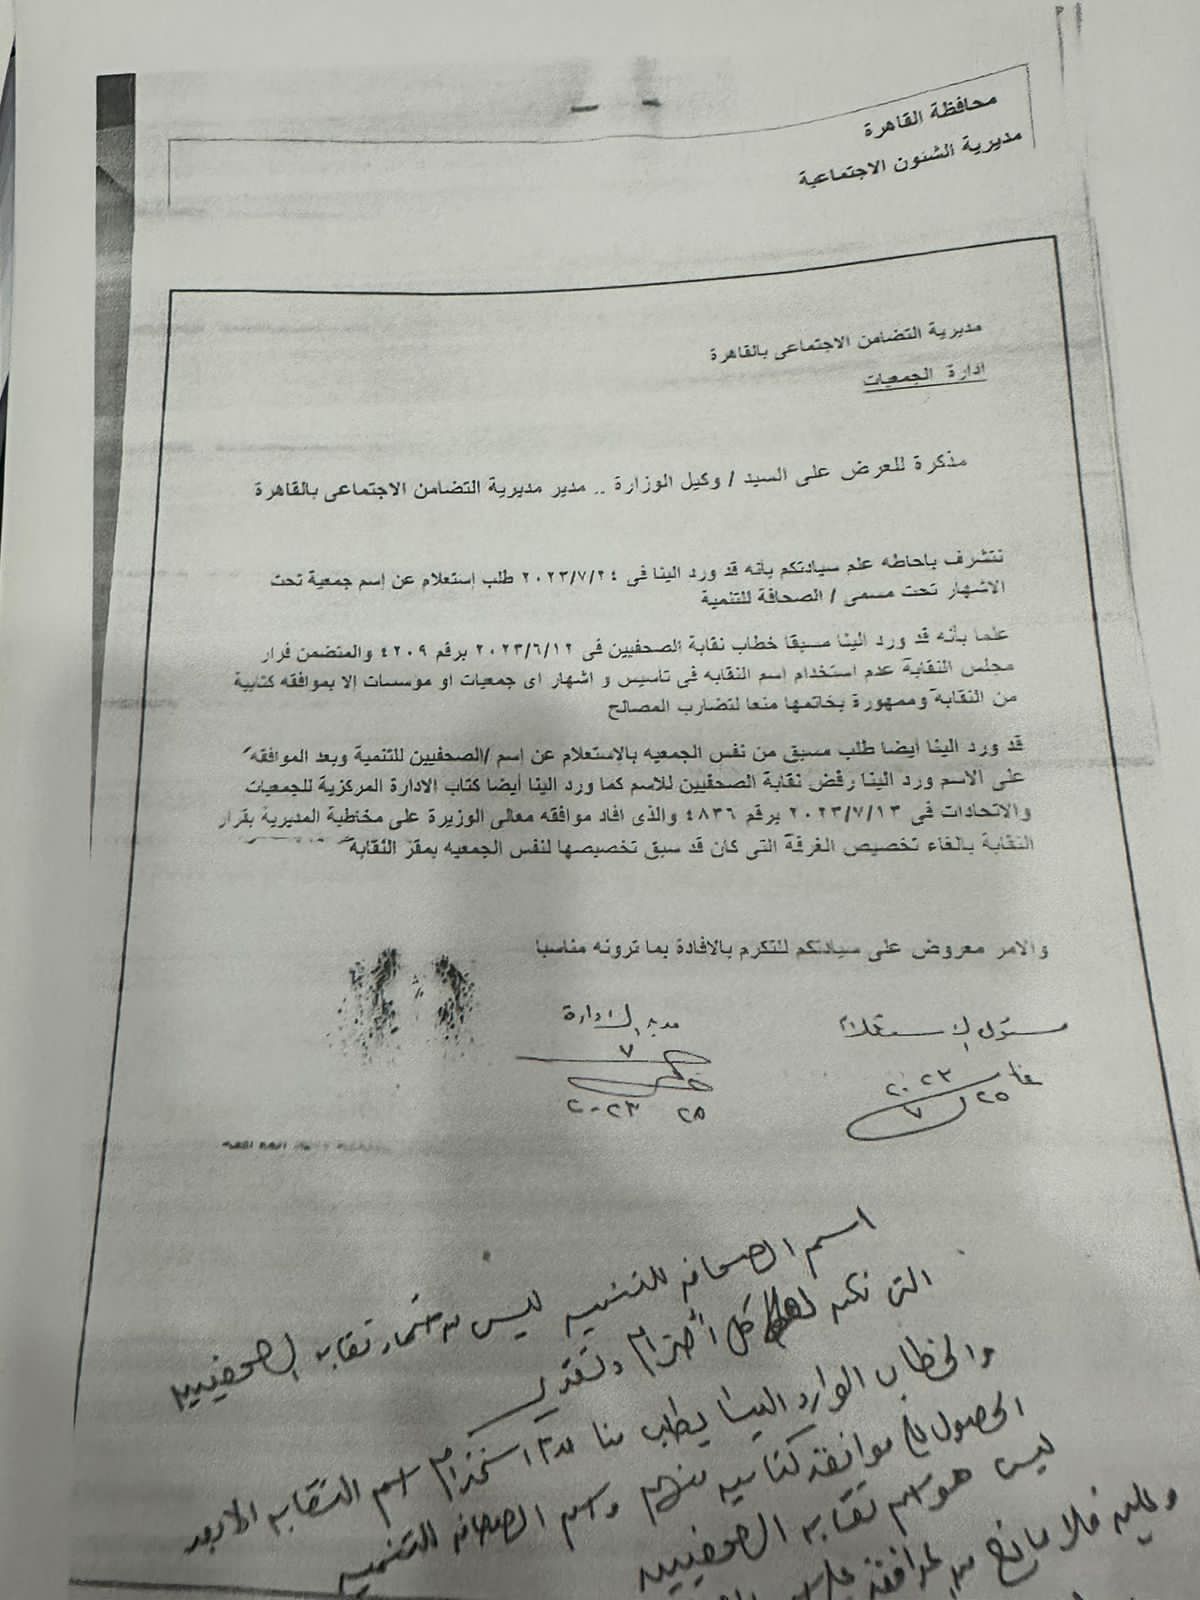 محافظة القاهرة
مديرية الشئون الاجتماعية
مديرية التضامن الاجتماعى بالقاهرة
ادارة الجمعيات
مذكرة للعرض على السيد / وكيل الوزارة .. مدير مديرية التضامن الاجتماعى بالقاهرة
نتشرف باحاطه علم سيادتكم بأنه قد ورد الينا فى ٢٠٢٣/٧/٢٤ طلب إستعلام عن إسم جمعية تحت
الاشهار تحت مسمى / الصحافة للتنمية
علما بأنه قد ورد الينا مسبقا خطاب نقابة الصحفيين فى ٢٠٢٣/٦/١٢ برقم ٤٢٠٩ والمتضمن قرار
مجلس النقابة عدم استخدام إسم النقابه فى تأسيس و اشهار اى جمعيات او مؤسسات إلا بموافقه كتابية
من النقابة وممهورة بخاتمها منعا لتضارب المصالح
قد ورد الينا أيضا طلب مسبق من نفس الجمعيه بالاستعلام عن إسم /الصحفيين للتنمية وبعد الموافقه
على الاسم ورد الينا رفض نقابة الصحفيين للاسم كما ورد الينا أيضا كتاب الادارة المركزية للجمعيات
والاتحادات فى ٢٠٢٣/٧/١٣ برقم ٤٨٣٦ والذى افاد موافقه معالى الوزيرة على مخاطبة المديرية بقرار
النقابة بالغاء تخصيص الغرفة التى كان قد سبق تخصيصها لنفس الجمعيه بمقر النقابة
والامر معروض على سيادتكم للتكرم بالافادة بما ترونه مناسبا
مسئول الاستعلام
مدير الادارة
٢٥ ٧ ٢٠٢٣
٢٥ ٧ ٢٠٢٣
اسم الصحافه للتنميه ليس من اسماء نقابه الصحفيين
التى نكن لها كل أحترام وتقدير
والخطاب الوارد الينا يطلب منا عدم استخدام اسم النقابه الا بعد
الحصول على موافقه كتابيه منهم واسم الصحافه للتنميه
ليس هو اسم نقابه الصحفيين
وعليه فلا مانع من الموافقه على اسم